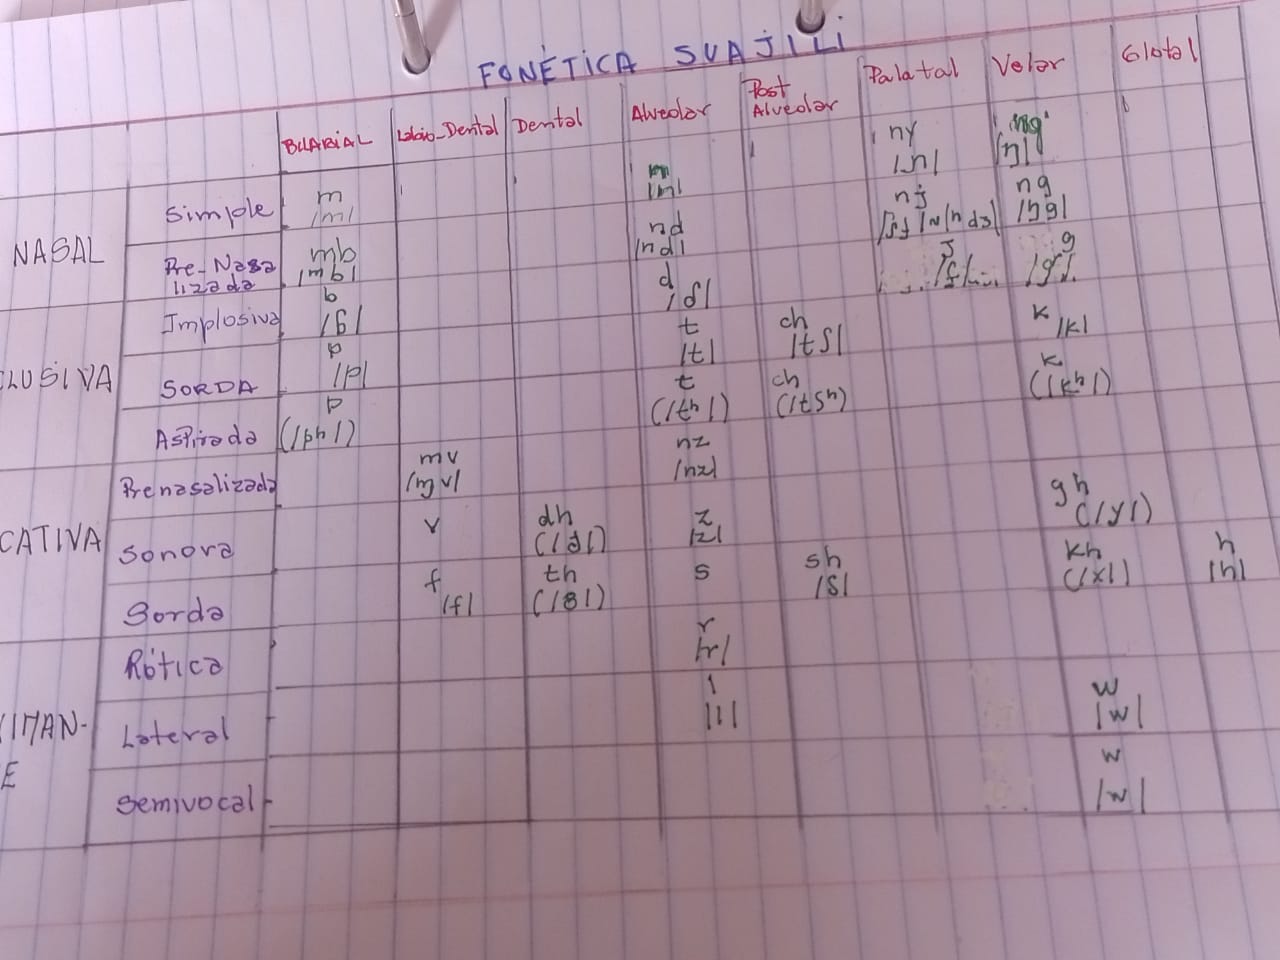 FONÉTICA SUAJILI
BILABIAL Labio-Dental Dental Alveolar Post Alveolar Palatal Velar Glotal
NASAL
Simple m /m/ n /n/ ny /ɲ/ ng' /ŋ/
Pre-Nasalizada mb /mb/ nd /nd/ nj ng /ŋg/
Implosiva b /ɓ/ d /ɗ/ j g /ɠ/
LUSIVA
SORDA p /p/ t /t/ ch /tʃ/ k /k/
Aspirada p (/ph/) t (/th/) ch (/tʃh) k (/kh/)
CATIVA
Prenasalizada mv /ɱv/ nz /nz/
Sonora v dh (/ð/) z /z/ gh (/ɣ/)
Sorda f /f/ th (/θ/) s sh /ʃ/ kh (/x/) h /h/
Rótica r /r/
Lateral l /l/ w /w/
Semivocal w /w/